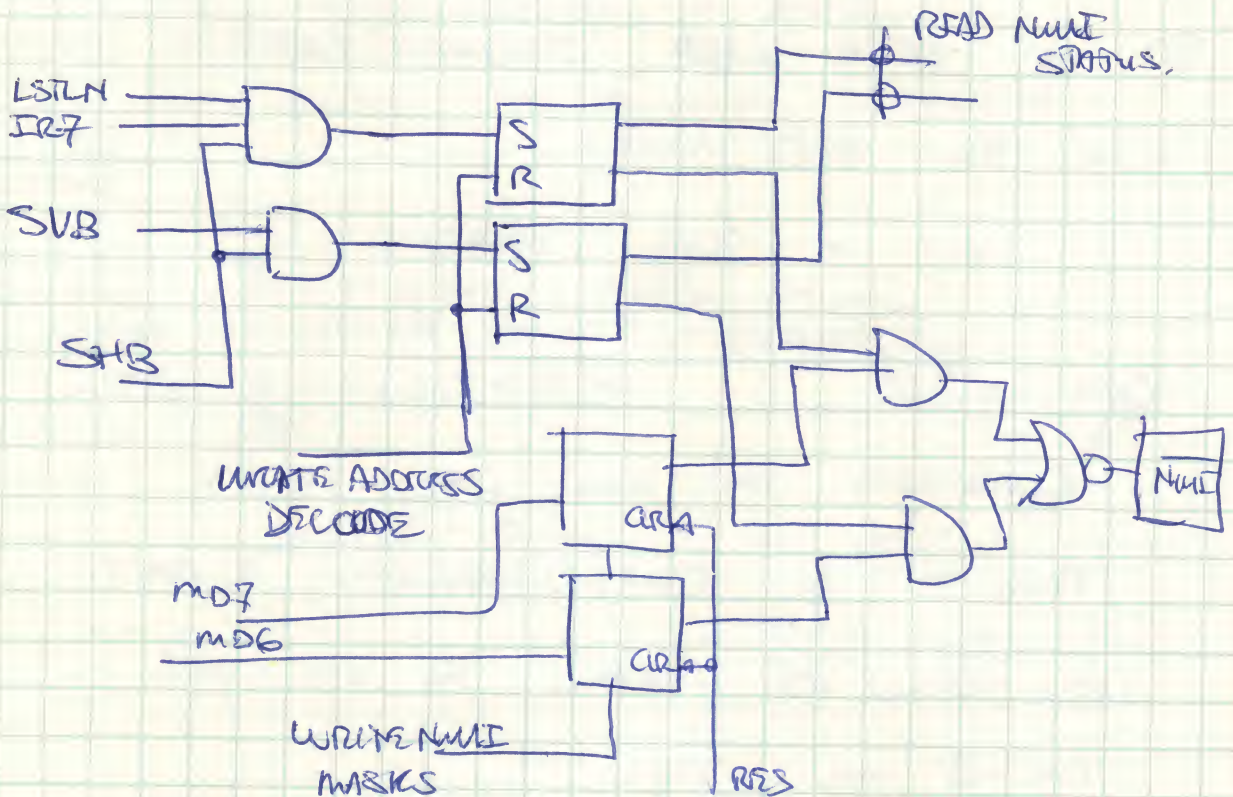 READ NMI
STATUS.
LSTLN
IR7
S
R
SVB
S
R
SHB
WRITE ADDRESS
DECODE
NMI
CLR
MD7
MD6
CLR
WRITE NMI
MASKS
RES